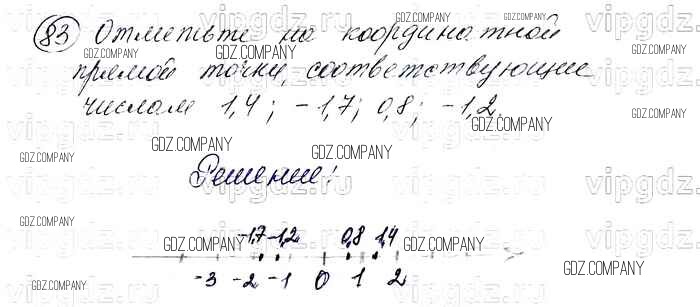 83 Отметьте на координатной
прямой точки, соответствующие
числам 1,4; -1,7; 0,8; -1,2.
Решение:
-1,7 -1,2 0,8 1,4
-3 -2 -1 0 1 2
GDZ.COMPANY
vipgdz.ru